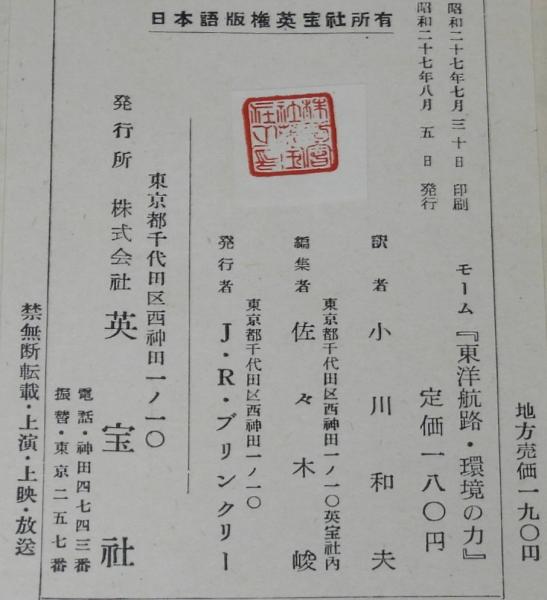 日本語版権英宝社所有
地方売価一九〇円
昭和二十七年七月三十日 印刷
昭和二十七年八月 五 日 発行
モーム『東洋航路・環境の力』
定価一八〇円
訳者 小川和夫
東京都千代田区西神田一ノ一〇英宝社内
編集者 佐々木峻
東京都千代田区西神田一ノ一〇
発行者 J・R・ブリンクリー
東京都千代田区西神田一ノ一〇
発行所 株式会社 英宝社
電話・神田四七四三番
振替・東京二五七番
禁無断転載・上演・上映・放送